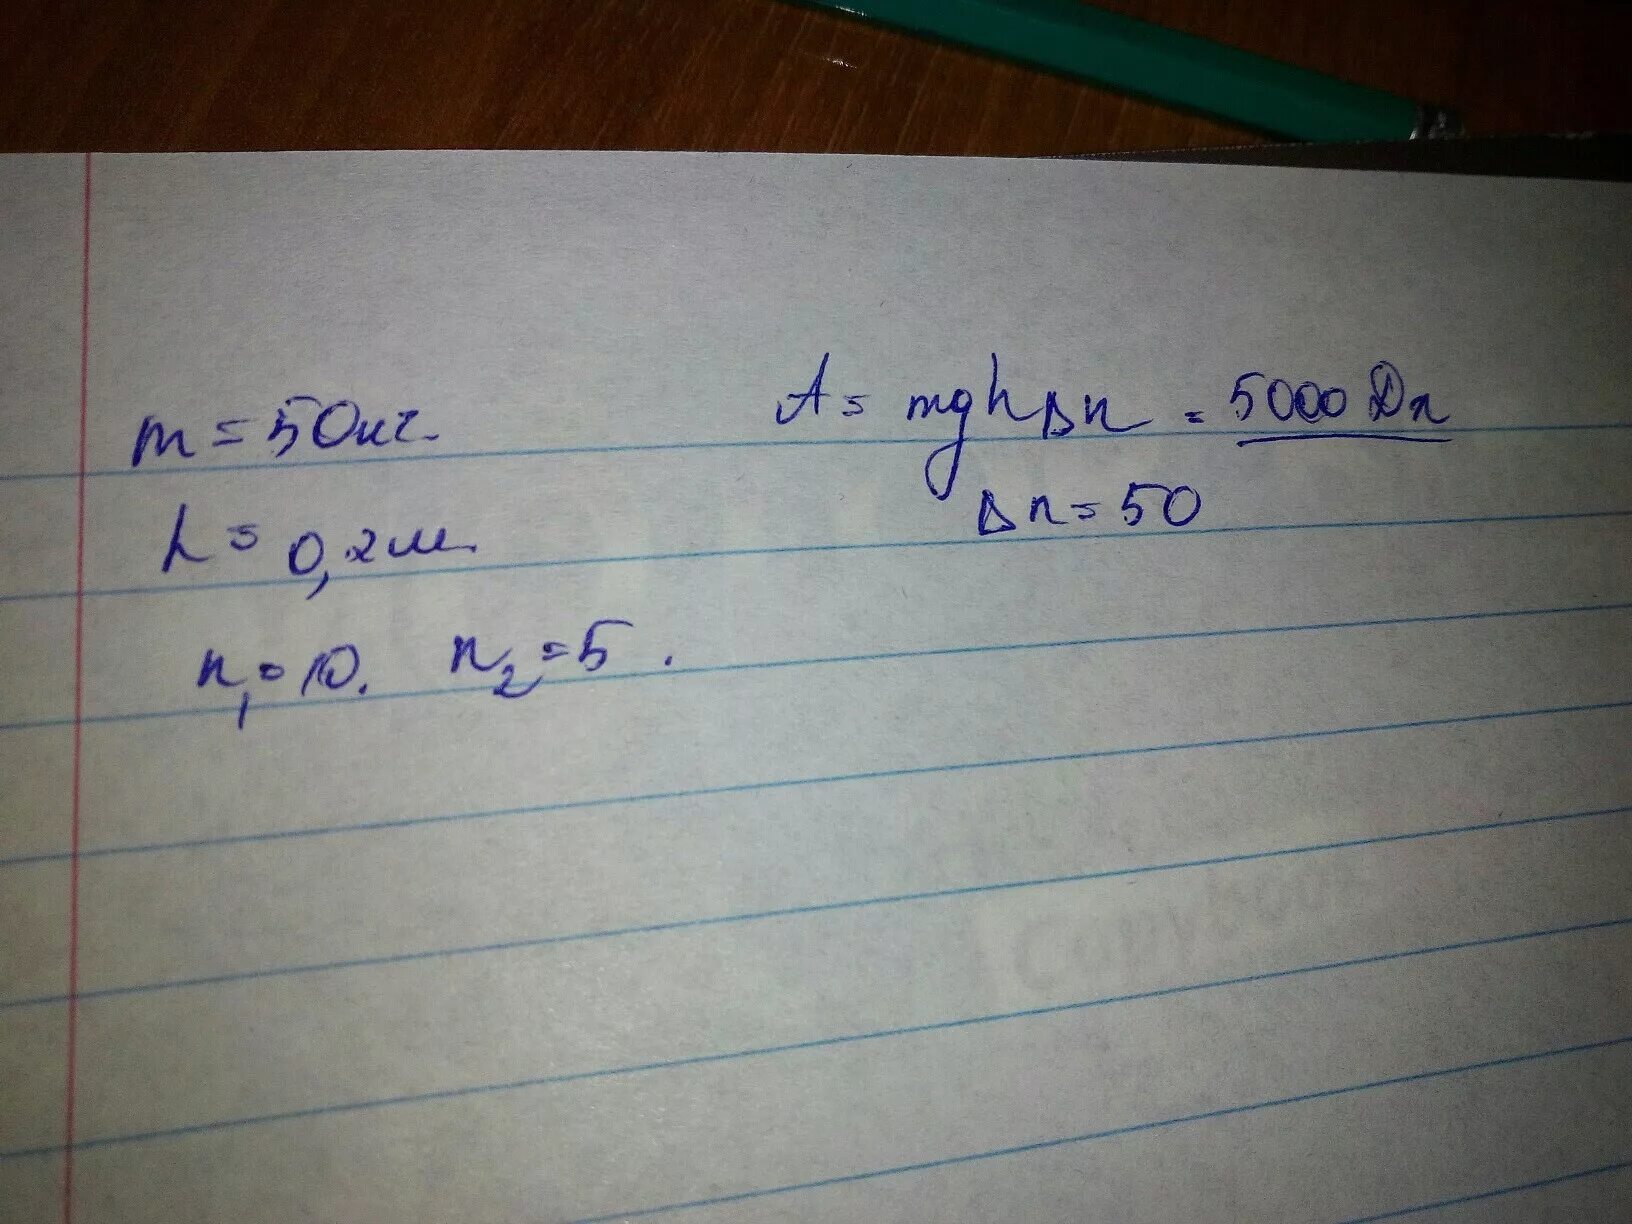 m = 50кг.
h = 0,2м.
n₁ = 10. n₂ = 5.
A = mghΔn = 5000 Дж
Δn = 50